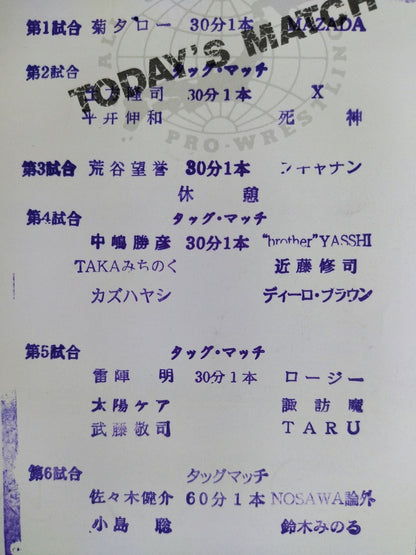 第1試合 菊タロー 30分1本 MAZADA
TODAY'S MATCH
第2試合 タッグ・マッチ
隆司 30分1本 X
平井伸和 死神
PRO-WRESTLING
第3試合 荒谷望誉 30分1本 ブキャナン
休憩
第4試合 タッグ・マッチ
中嶋勝彦 30分1本 "brother"YASSHI
TAKAみちのく 近藤修司
カズハヤシ ディーロ・ブラウン
第5試合 タッグ・マッチ
雷陣 明 30分1本 ロージー
太陽ケア 諏訪魔
武藤敬司 TARU
第6試合 タッグマッチ
佐々木健介 60分1本 NOSAWA論外
小島 聡 鈴木みのる